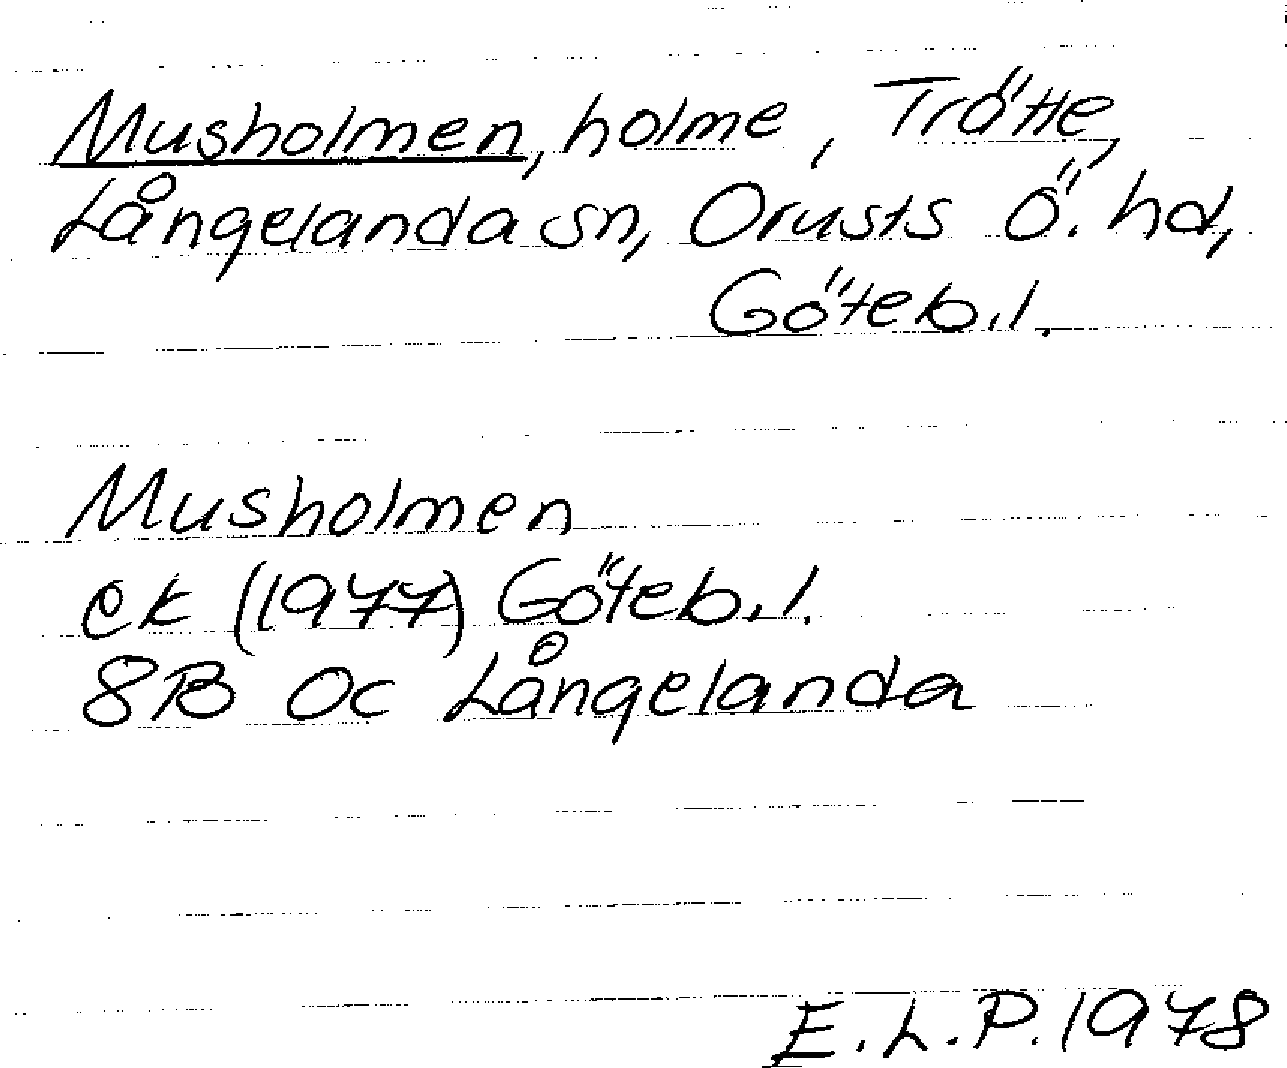 Musholmen, holme, Trätte,
Långelanda sn, Orusts Ö. hd,
Göteb.l.
Musholmen
ek (1977) Göteb.l.
8B 0c Långelanda
E.L.P. 1978